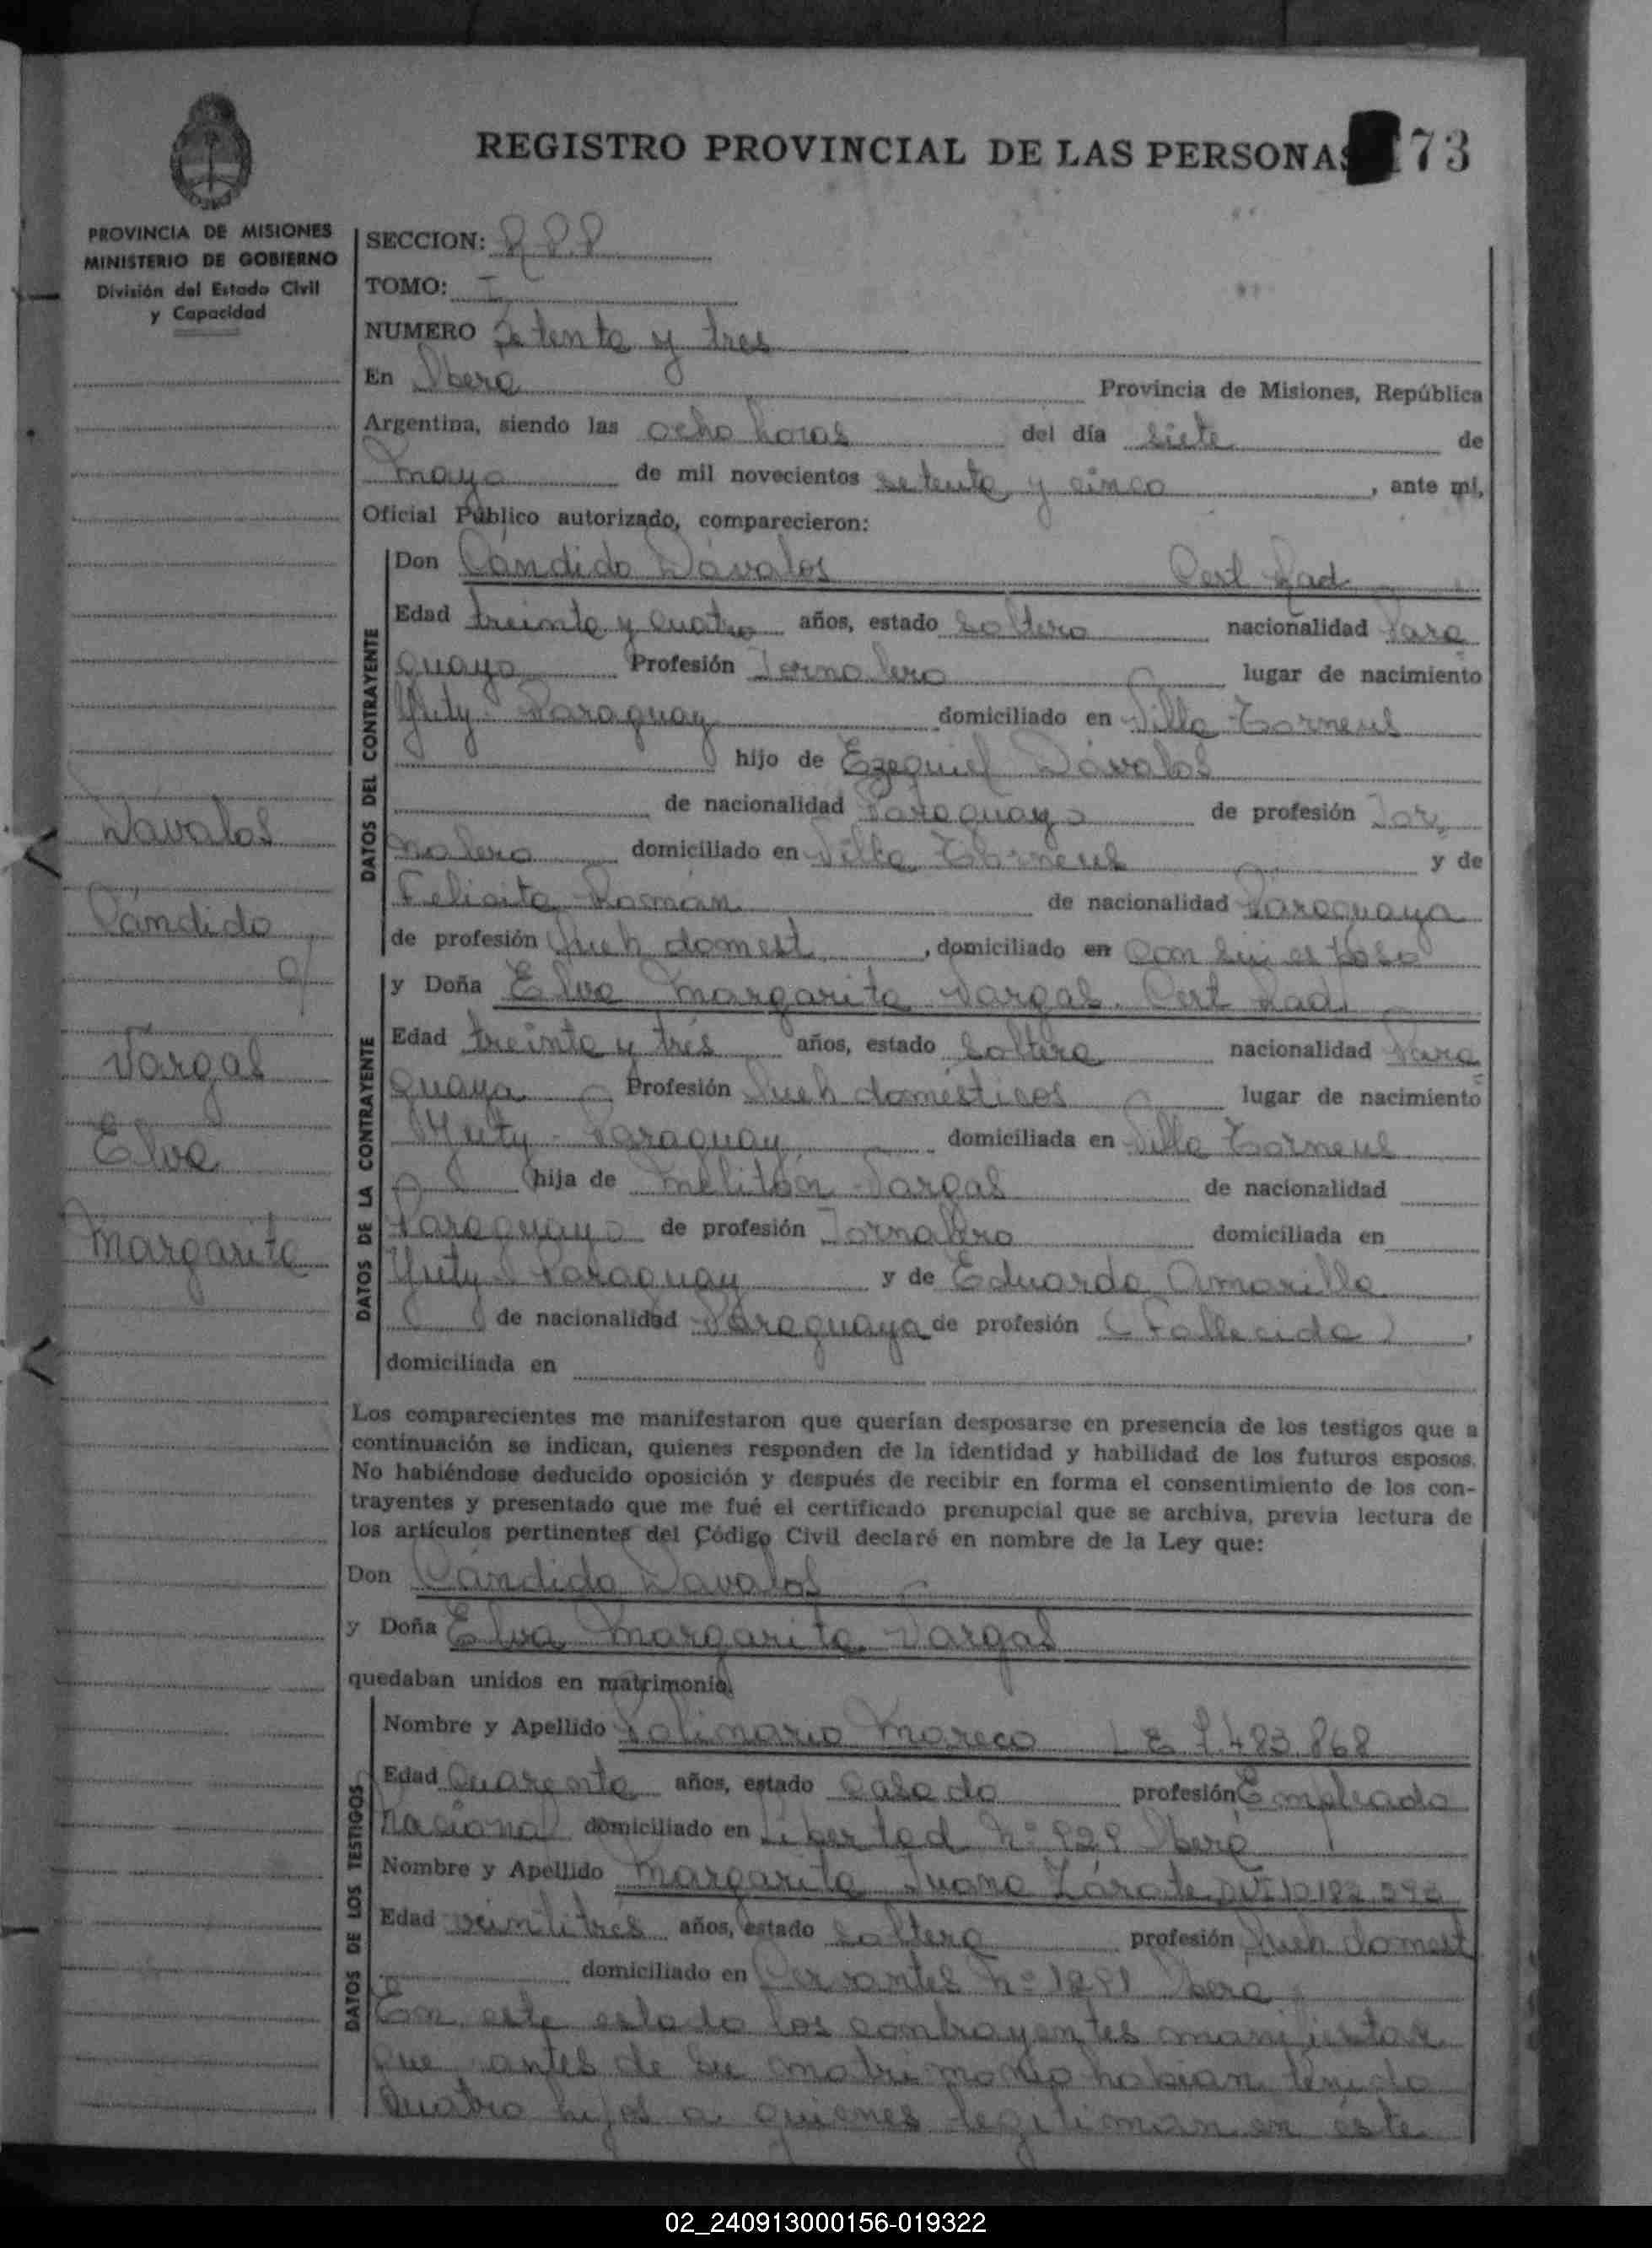 REGISTRO PROVINCIAL DE LAS PERSONAS 173
PROVINCIA DE MISIONES
MINISTERIO DE GOBIERNO
División del Estado Civil
y Capacidad
SECCION:
TOMO: I
NUMERO Setenta y tres
En Oberá Provincia de Misiones, República
Argentina, siendo las ocho horas del día siete de
mayo de mil novecientos setenta y cinco, ante mí,
Oficial Público autorizado, comparecieron:
DATOS DEL CONTRAYENTE
Don Cándido Dávalos Cert Rad
Edad treinta y cuatro años, estado soltero nacionalidad Para
guayo Profesión Jornalero lugar de nacimiento
Yuty - Paraguay domiciliado en Villa Torneus
hijo de Ezequiel Dávalos
de nacionalidad Paraguayo de profesión Jor
nalero domiciliado en Villa Torneus y de
Felicita Román de nacionalidad Paraguaya
de profesión Queh domest, domiciliado en con su esposo
Dávalos
Cándido
c/
Vargas
Elva
Margarita
DATOS DE LA CONTRAYENTE
y Doña Elva Margarita Vargas. Cert Rad.
Edad treinta y trés años, estado soltera nacionalidad Para
guaya Profesión Queh domésticos lugar de nacimiento
Yuty - Paraguay domiciliada en Villa Torneus
hija de Melitón Vargas de nacionalidad
Paraguayo de profesión Jornalero domiciliada en
Yuty - Paraguay y de Eduarda Amarilla
de nacionalidad Paraguaya de profesión (Fallecida),
domiciliada en
Los comparecientes me manifestaron que querían desposarse en presencia de los testigos que a
continuación se indican, quienes responden de la identidad y habilidad de los futuros esposos.
No habiéndose deducido oposición y después de recibir en forma el consentimiento de los con-
trayentes y presentado que me fué el certificado prenupcial que se archiva, previa lectura de
los artículos pertinentes del Código Civil declaré en nombre de la Ley que:
Don Cándido Dávalos
y Doña Elva Margarita Vargas
quedaban unidos en matrimonio.
DATOS DE LOS TESTIGOS
Nombre y Apellido Moreco L E 7.483.868
Edad Cuarenta años, estado casado profesión Empleado
Nacional domiciliado en Libertad Nº 929 Oberá
Nombre y Apellido Margarita Juana Zárate DNI
Edad veintitrés años, estado soltera profesión Queh domest
domiciliado en Cervantes Nº Oberá
En este estado los contrayentes manifiestan
que antes de su matrimonio habían tenido
cuatro hijos a quienes legitiman en éste
02_240913000156-019322